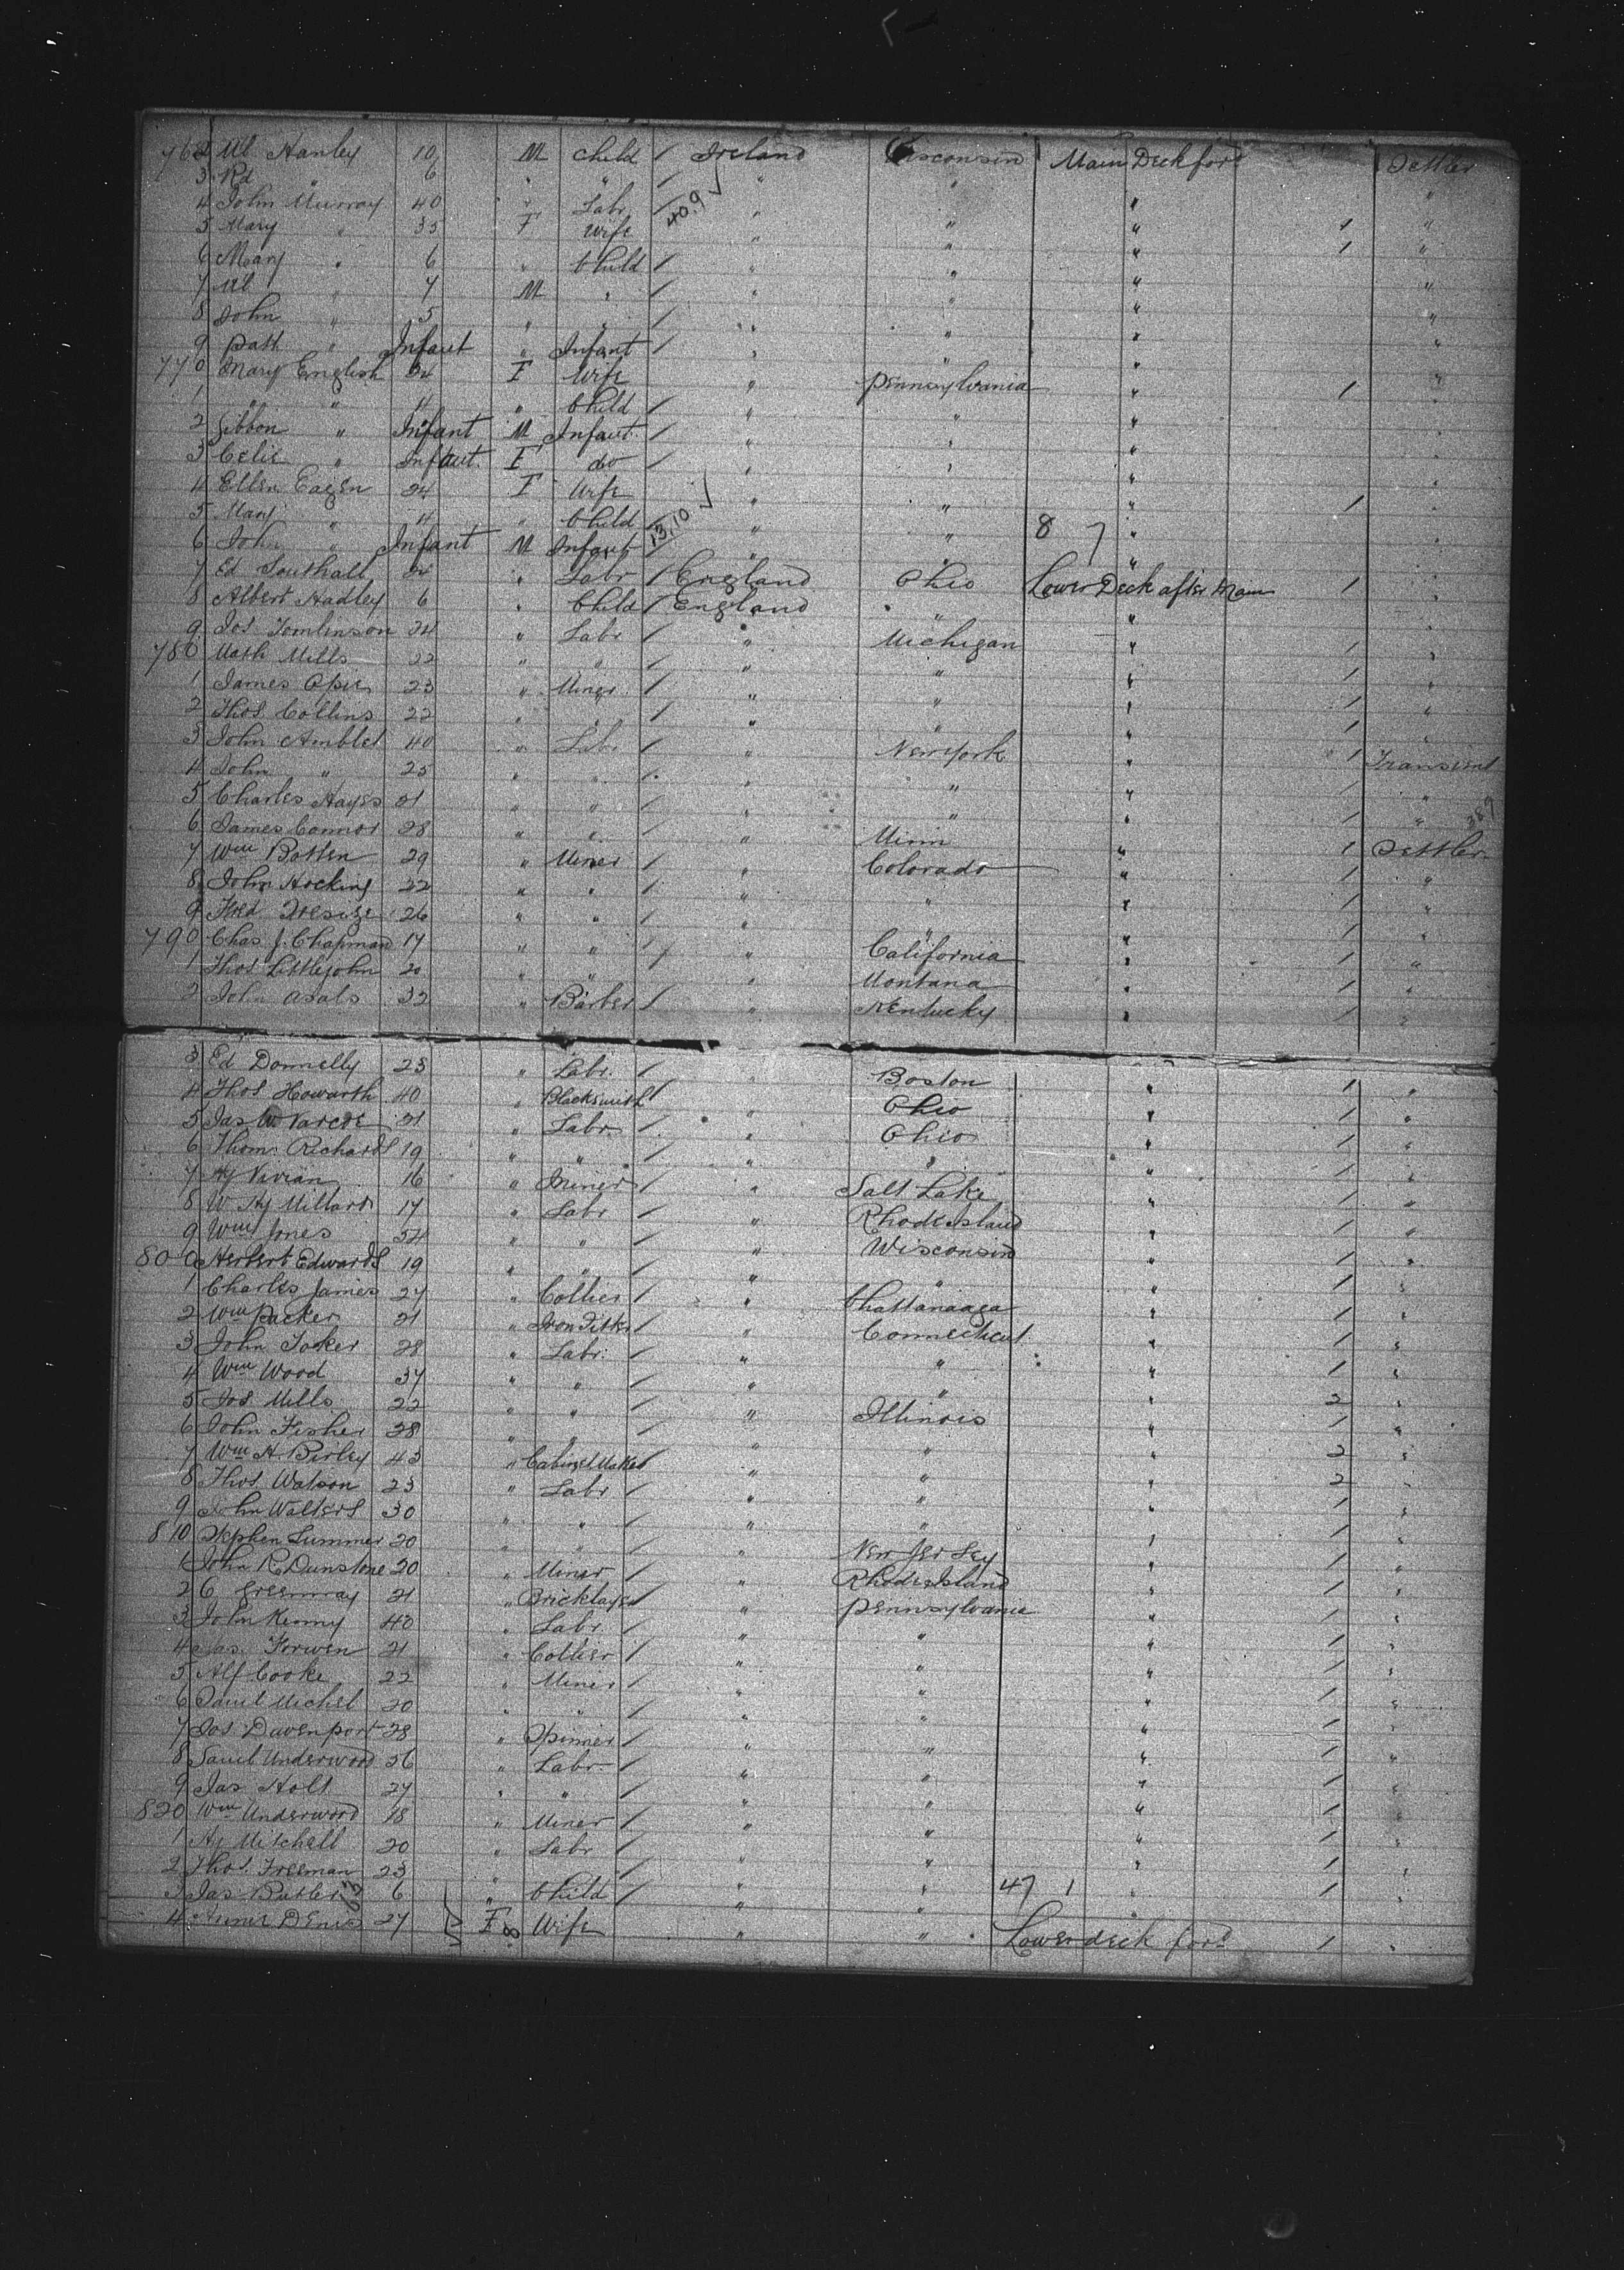 762 Ml Hanley 10 M Child / Ireland Wisconsin Main Deck ford Settler
3 Rd " 6 " " / " " " "
4 John Murray 40 " Labr / 40.9 √ " " " 1 "
5 Mary " 35 F Wife " " " 1 "
6 Mary " 6 " Child / " " " "
7 Ml " 7 M " / " " " "
8 John " 5 " " / " " " "
9 Patt " Infant " Infant / " " " "
770 Mary English 34 F Wife " Pennsylvania " 1 "
1 " " 4 " Child / " " " "
2 Gibbon " Infant M Infant / " " " "
3 Celie " Infant F do / " " " "
4 Ellen Eagen 24 F Wife " " " 1 "
5 Mary " 4 " Child / 13.10 √ " " " "
6 John " Infant M Infant / " " 8 7 " "
7 Ed Southall 24 " Labr / England Ohio Lower Deck after Main 1 "
8 Albert Hadley 6 " Child / England " " "
9 Jos Tomlinson 24 " Labr / " Michigan " 1 "
780 Math Mills 22 " " / " " " 1 "
1 James Opie 23 " Miner / " " " 1 "
2 Thos Collins 22 " " / " " " 1 "
3 John Amblet 40 " Labr / " New York " 1 Transient
4 John " 25 " " / " " " 1 "
5 Charles Hayes 21 " " / " " " 1 " 389
6 James Connor 28 " " / " Minn " 1 Settler
7 Wm Batten 29 " Miner / " Colorado " 1 "
8 John Hocking 22 " " / " " " 1 "
9 Fred 26 " " / " " " 1 "
790 Chas J. Chapman 17 " " / " California " 1 "
1 Thos Littlejohn 20 " " / " Montana " 1 "
2 John Asals 32 " Barber / " Kentucky " 1 "
3 Ed Donnelly 23 " Labr / " Boston " 1 "
4 Thos Howarth 40 " Blacksmith / " Ohio " 1 "
5 Jas W. Varcoe 21 " Labr / " Ohio " 1 "
6 Thom. Richards 19 " " / " " " 1 "
7 Hy Vivian 16 " Miner / " Salt Lake " 1 "
8 W Hy Millard 17 " Labr / " Rhode Island " 1 "
9 Wm Jones 54 " " / " Wisconsin " 1 "
800 Herbert Edwards 19 " " / " " " 1 "
1 Charles James 27 " Collier / " Chattanaaga " 1 "
2 Wm Packer 21 " Iron Fitter / " Connecticut " 1 "
3 John Tooker 28 " Labr / " " " 1 "
4 Wm Wood 37 " " / " " " 2 "
5 Jos Mills 22 " " / " Illinois " 1 "
6 John Fisher 28 " " / " " " 2 "
7 Wm H. Birley 43 " Cabinet Maker / " " " 2 "
8 Thos Watson 23 " Labr / " " " 1 "
9 John Walters 30 " " / " " " 1 "
810 Stephen Summer 20 " " / " New Jersey " 1 "
1 John R Dunstone 20 " Miner / " Rhode Island " 1 "
2 C Greenway 21 " Bricklayer / " Pennsylvania " 1 "
3 John Kenny 40 " Labr / " " " 1 "
4 Jas. 21 " Collier / " " " 1 "
5 Alf Cooke 22 " Miner / " " " 1 "
6 Saml Michel 20 " " / " " " 1 "
7 Jos Davenport 28 " Spinner / " " " 1 "
8 Saml Underwood 26 " Labr / " " " 1 "
9 Jas Holt 27 " " / " " " 1 "
820 Wm Underwood 18 " Miner / " " " 1 "
1 Hy Mitchell 20 " Labr / " " " 1 "
2 Thos. Freeman 23 " " / " " " 1 "
3 Jas Butler 6 " Child / " " 47 1 " "
4 Annie 27 F 8 Wife " " Lower deck ford 1 "